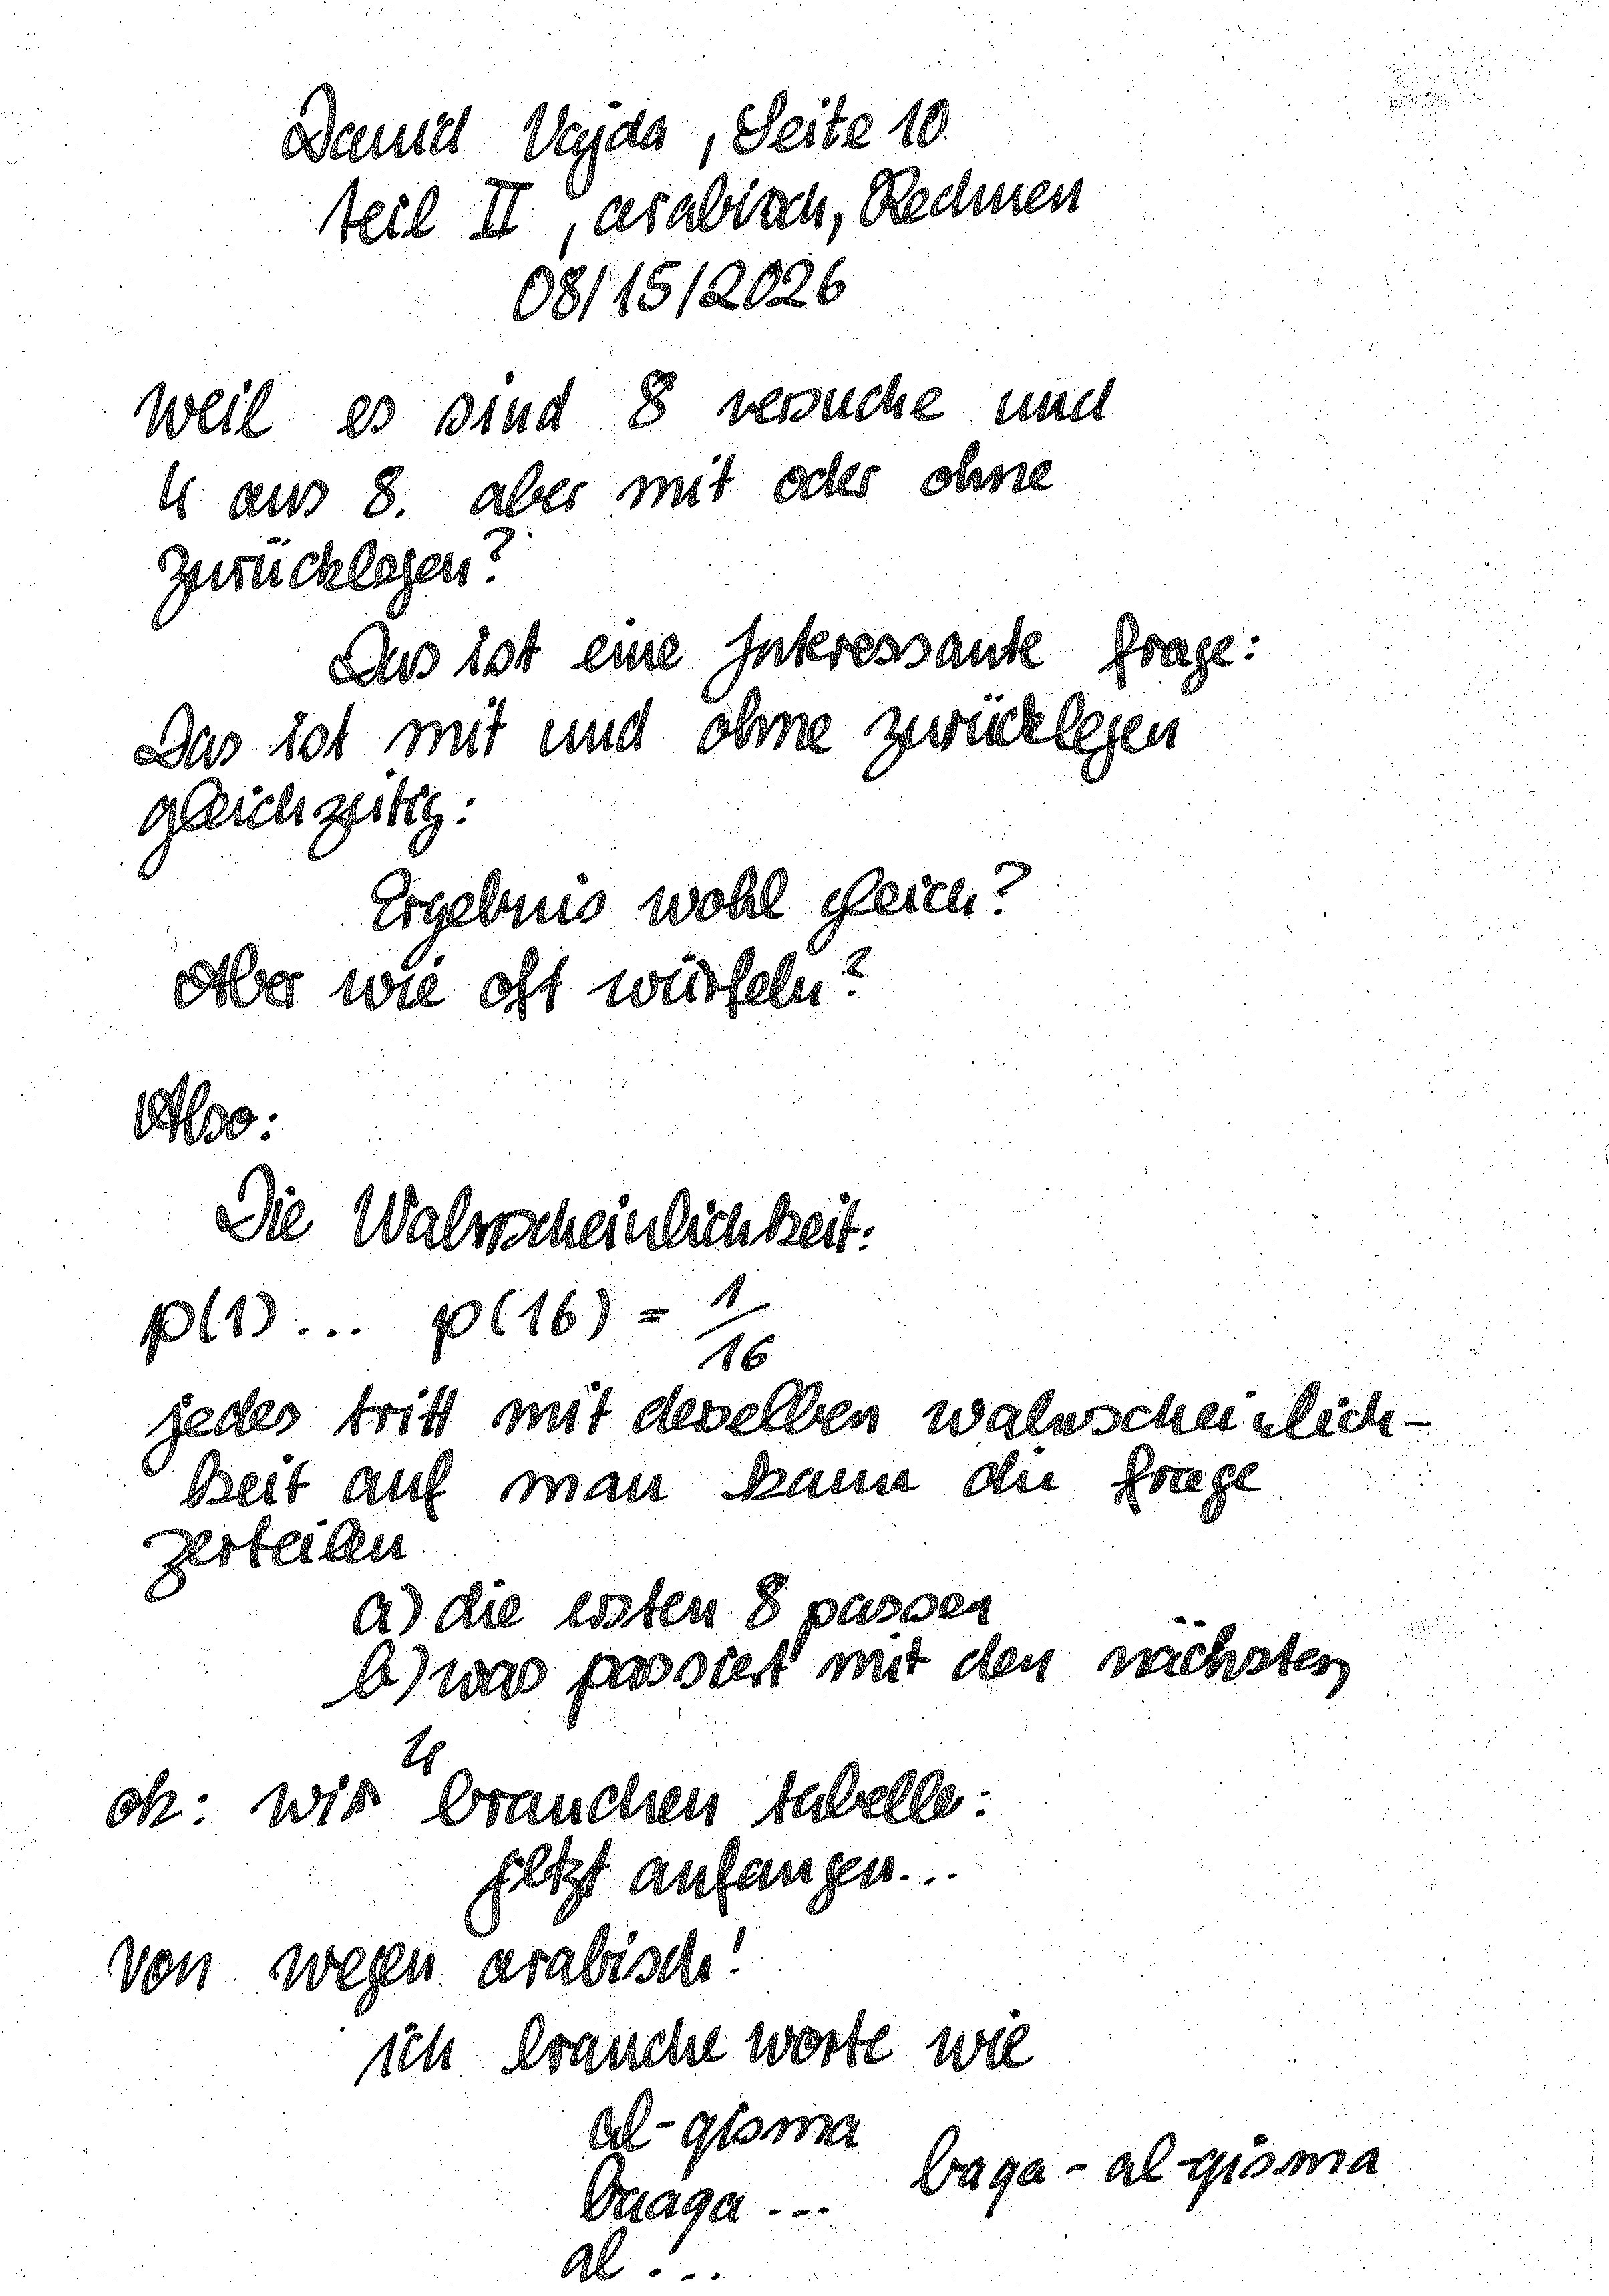 David Vajda, Seite 10
teil II, arabisch, Rechnen
08/15/2026
weil es sind 8 versuche und
4 aus 8. aber mit oder ohne
zurücklegen?
Das ist eine Interessante frage:
Das ist mit und ohne zurücklegen
gleichzeitig:
Ergebnis wohl gleich?
Aber wie oft würfeln?
Also:
Die Wahrscheinlichkeit:
p(1)... p(16) = 1/16
jedes tritt mit derselben wahrscheinlich-
keit auf man kann die frage
zerteilen
a) die ersten 8 passen
b) was passiert mit den nächsten
4
ok: wir brauchen tabelle:
jetzt anfangen...
von wegen arabisch!
ich brauche worte wie
al-qisma
baaqa... baqa-al-qisma
al...